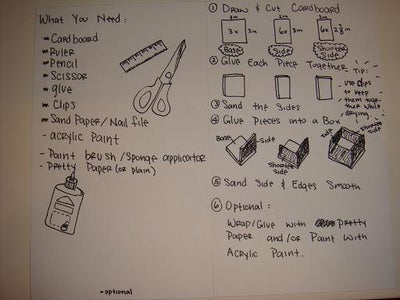 What You Need:
Cardboard
Ruler
Pencil
Scissor
glue
Clips
Sand Paper/Nail file
- acrylic Paint
- Paint brush/Sponge applicator
- Pretty Paper (or plain)
- optional
① Draw & Cut Cardboard
3in 3in 3in
3x 3in 6x 3in 6x 2 3/4in
Base Side Shorter Side
② Glue Each Piece Together
Tip:
- use clips
to keep
them toge-
ther while
drying.
③ Sand the Sides
④ Glue Pieces into a Box
Base Side Shorter Side Side Shorter Side
⑤ Sand Side & Edges Smooth
⑥ Optional:
Wrap/Glue with Pretty
Paper and/or Paint With
Acrylic Paint.